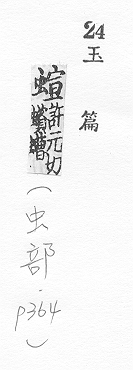 24
玉篇
蝖許元切
蠐螬
(虫部·p364)